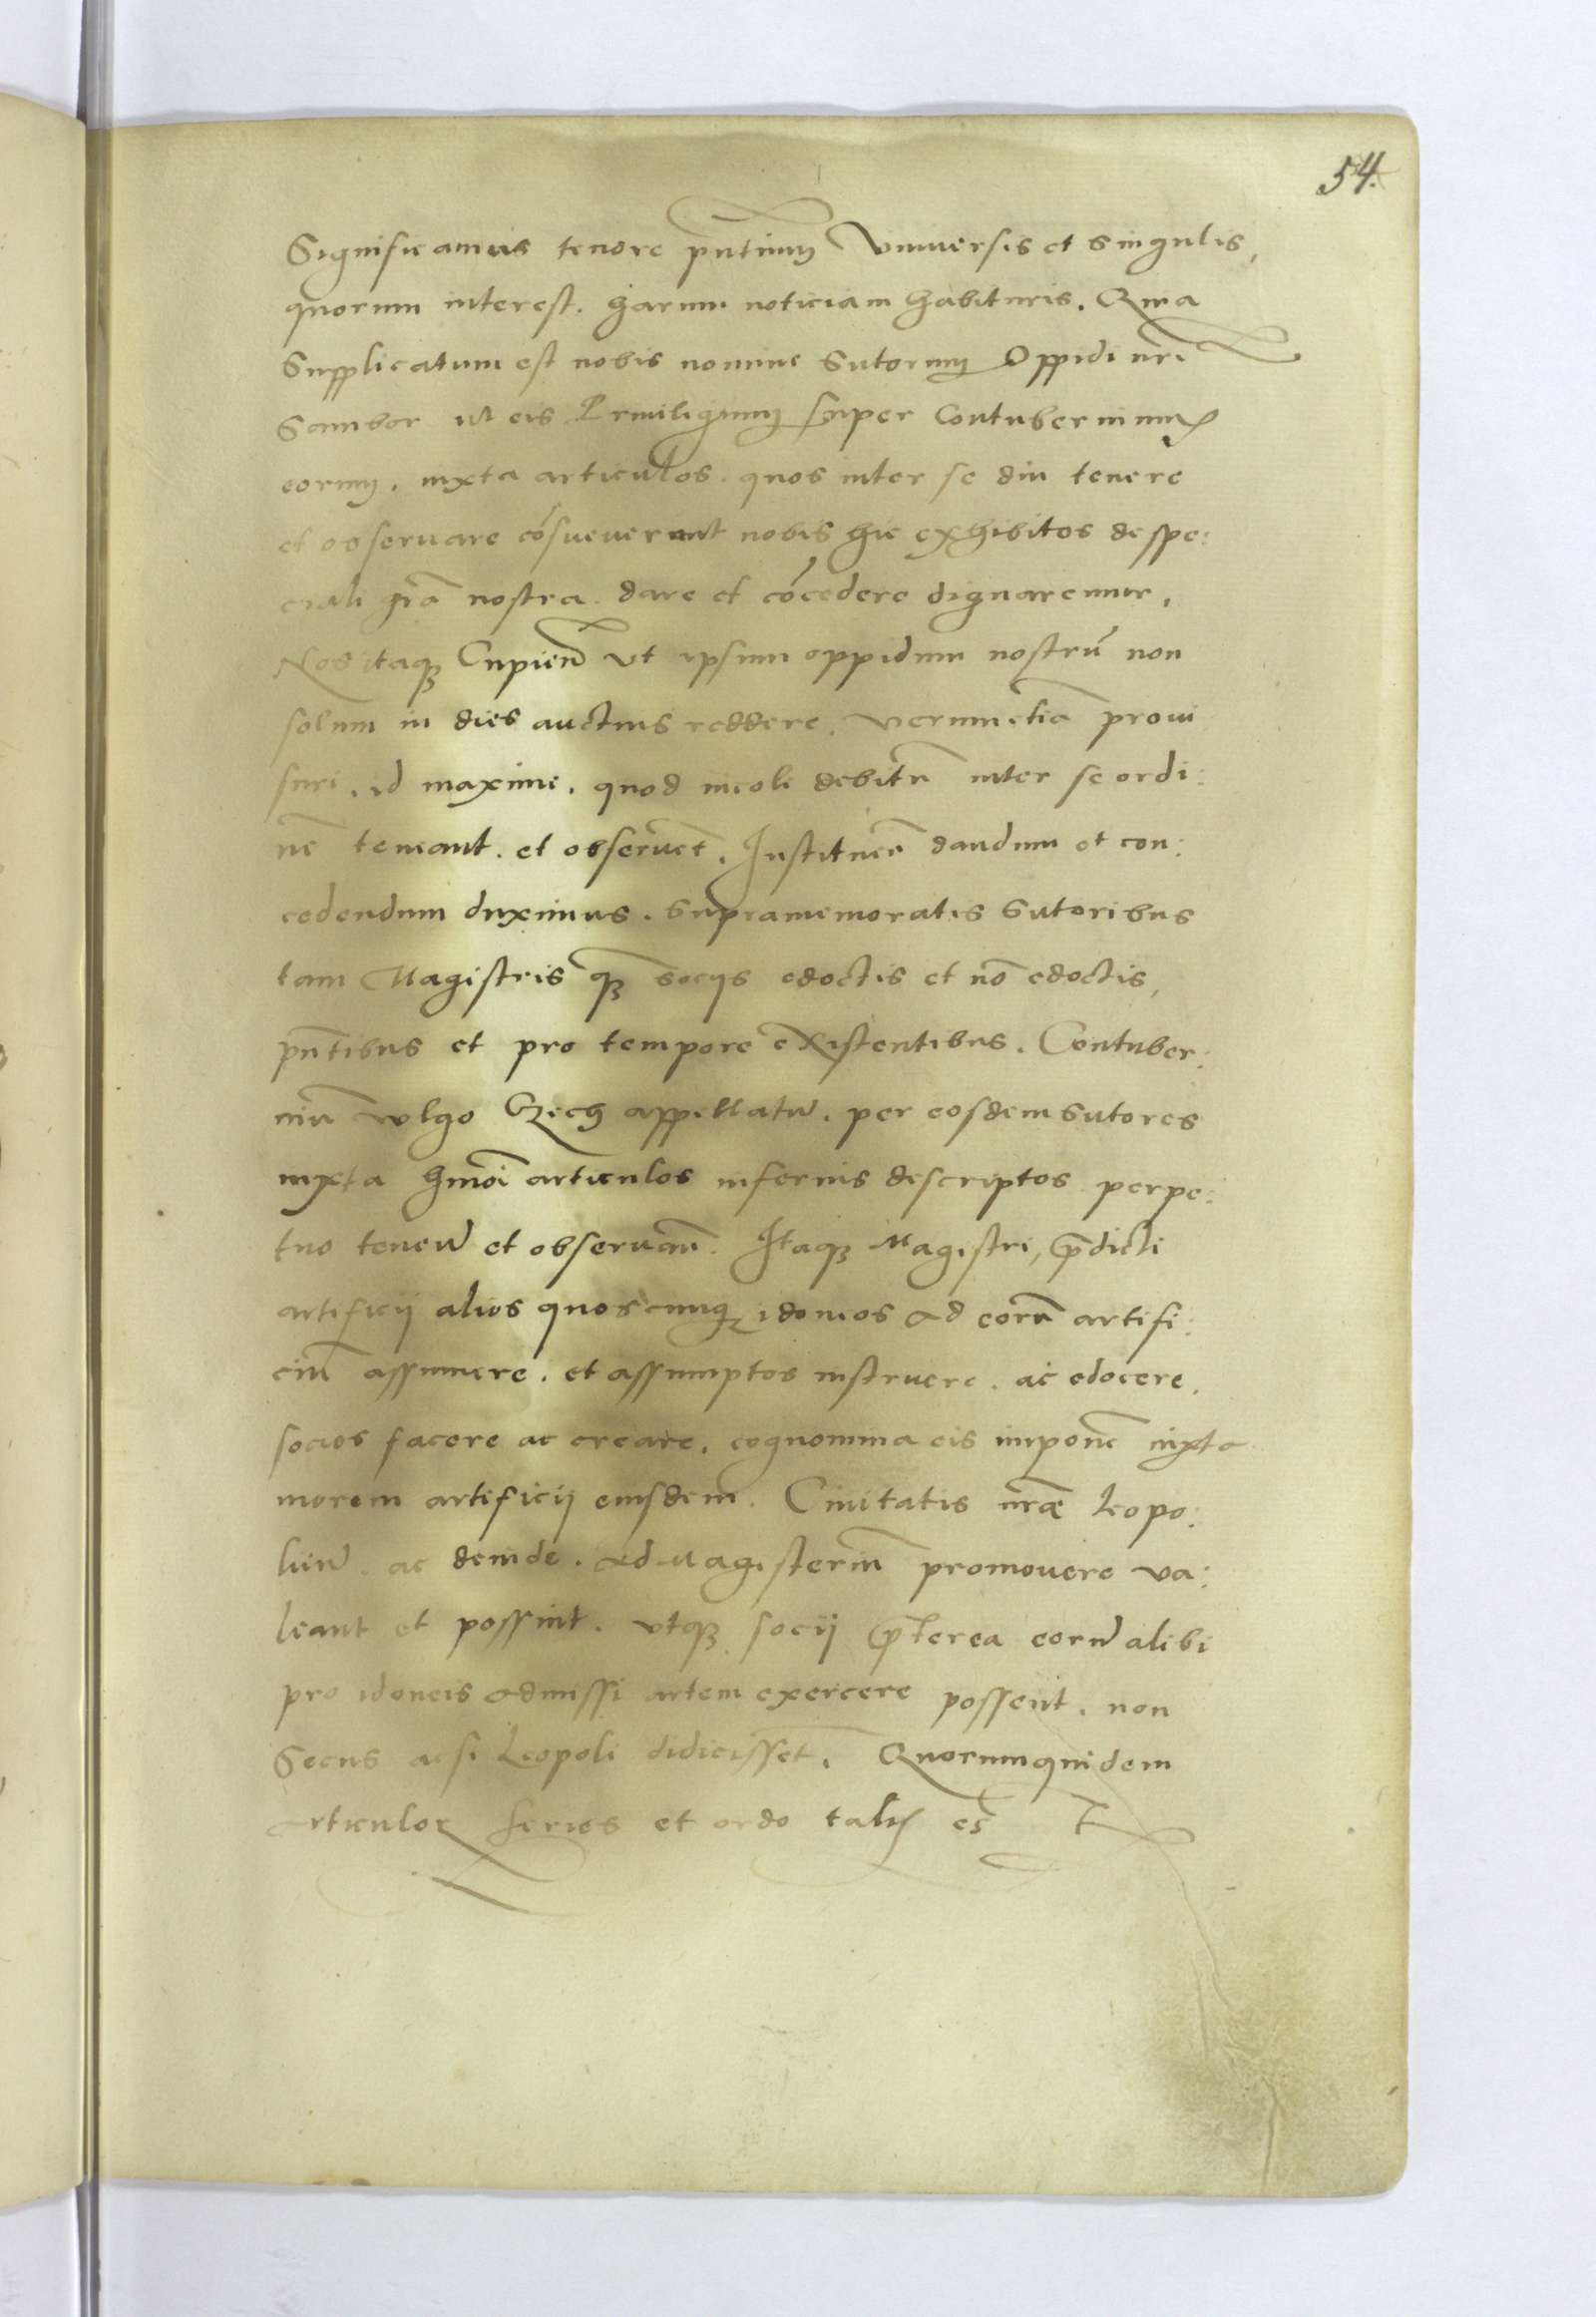 54.
Significamus tenore pn̄tium Vniuersis et singulis,
quorum interest. harum noticiam habituris. Quia
Supplicatum est nobis nomine Sutorum Oppidi nr̄i
Sambor ut eis Priuiligium super Contubernium
eorum. iuxta articulos. quos inter se diu tenere
et obseruare cōsueuerunt nobis hic exhibitos de spe:
ciali grā nostra. dare et cōcedere dignaremur.
Nos itaqꝫ Cupien̄ vt ipsum oppidum nostrū non
solum in dies auctius reddere. verumetiā proui
suri. id maxime. quod incoli debitū inter se ordi:
nē teneant. et obseruēt. Instituere dandum et con:
cedendum duximus. Supramemoratis Sutoribus
tam Magistris qꝫ socijs edoctis et nō edoctis,
pn̄tibus et pro tempore existentibus. Contuber:
niū vulgo Czech appellatur. per eosdem Sutores
iuxta hmōi articulos inferius descriptos perpe:
tuo teneñ et obseruañ. Itaqꝫ Magistri, p̄dicti
artificij alios quoscunqꝫ idoneos ad eorū artifi:
ciū assumere. et assumptos instruere. ac edocere.
socios facere ac creare. cognomina eis imponē iuxta
morem artificij eiusdem. Ciuitatis nr̄æ Leopo:
lieñ. ac deinde. ad Magisteriū promouere va:
leant et possint. vtqꝫ socij p̄terea eorū alibi
pro idoneis admissi artem exercere possent. non
Secus acsi Leopoli didicissēt. Quorumquidem
articulor̄ series et ordo talis est